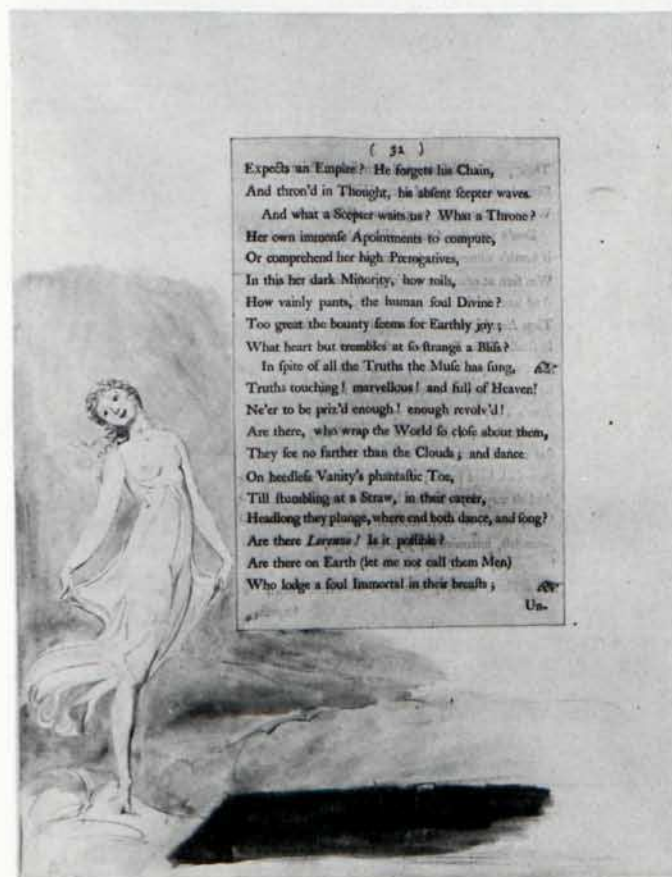 ( 32 )
Expects an Empire? He forgets his Chain,
And thron'd in Thought, his absent ſcepter waves.
And what a Scepter waits us? What a Throne?
Her own immenſe Apointments to compute,
Or comprehend her high Prerogatives,
In this her dark Minority, how toils,
How vainly pants, the human ſoul Divine?
Too great the bounty ſeems for Earthly joy;
What heart but trembles at ſo ſtrange a Bliſs?
In ſpite of all the Truths the Muſe has ſung,
Truths touching! marvellous! and full of Heaven!
Ne'er to be priz'd enough! enough revolv'd!
Are there, who wrap the World ſo cloſe about them,
They ſee no farther than the Clouds; and dance
On heedleſs Vanity's phantaſtic Toe,
Till ſtumbling at a Straw, in their career,
Headlong they plunge, where end both dance, and ſong?
Are there Lorenzo! Is it poſſible?
Are there on Earth (let me not call them Men)
Who lodge a ſoul Immortal in their breaſts;
Un-